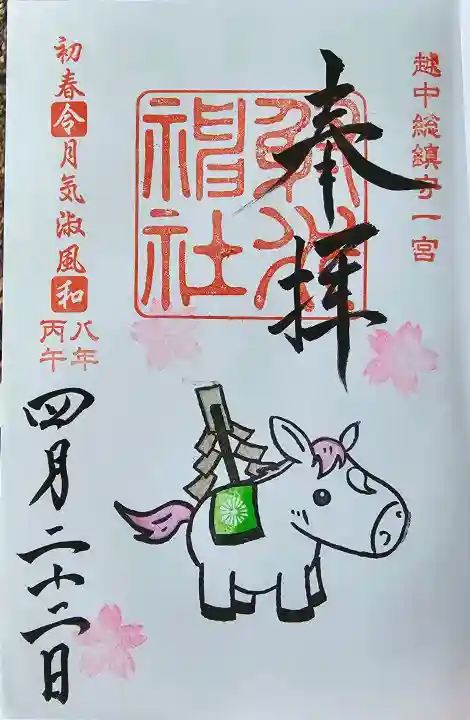 越中総鎮守一宮
奉拝
射水
神社
初春令月気淑風和
八年
丙午
四月二十二日